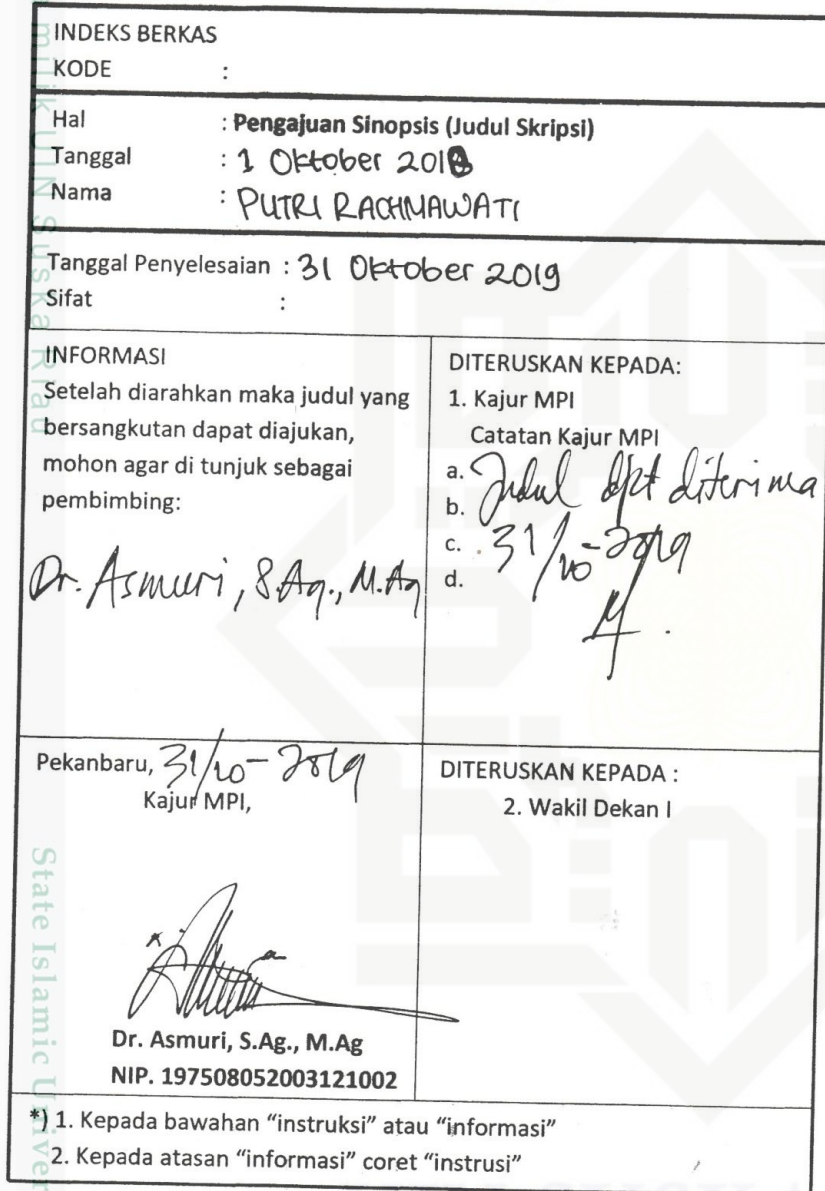 INDEKS BERKAS
KODE :
Hal : Pengajuan Sinopsis (Judul Skripsi)
Tanggal : 1 Oktober 2019
Nama : PUTRI RACHMAWATI
Tanggal Penyelesaian : 31 Oktober 2019
Sifat :
INFORMASI
Setelah diarahkan maka judul yang
bersangkutan dapat diajukan,
mohon agar di tunjuk sebagai
pembimbing:
Dr. Asmuri, S.Ag., M.Ag
DITERUSKAN KEPADA:
1. Kajur MPI
Catatan Kajur MPI
a. Judul dpt diterima
b.
c. 31/10-2019
d.
Pekanbaru, 31/10-2019
Kajur MPI,
Dr. Asmuri, S.Ag., M.Ag
NIP. 197508052003121002
DITERUSKAN KEPADA :
2. Wakil Dekan I
*) 1. Kepada bawahan "instruksi" atau "informasi"
2. Kepada atasan "informasi" coret "instrusi"
milik UIN Suska Riau
State Islamic Univer